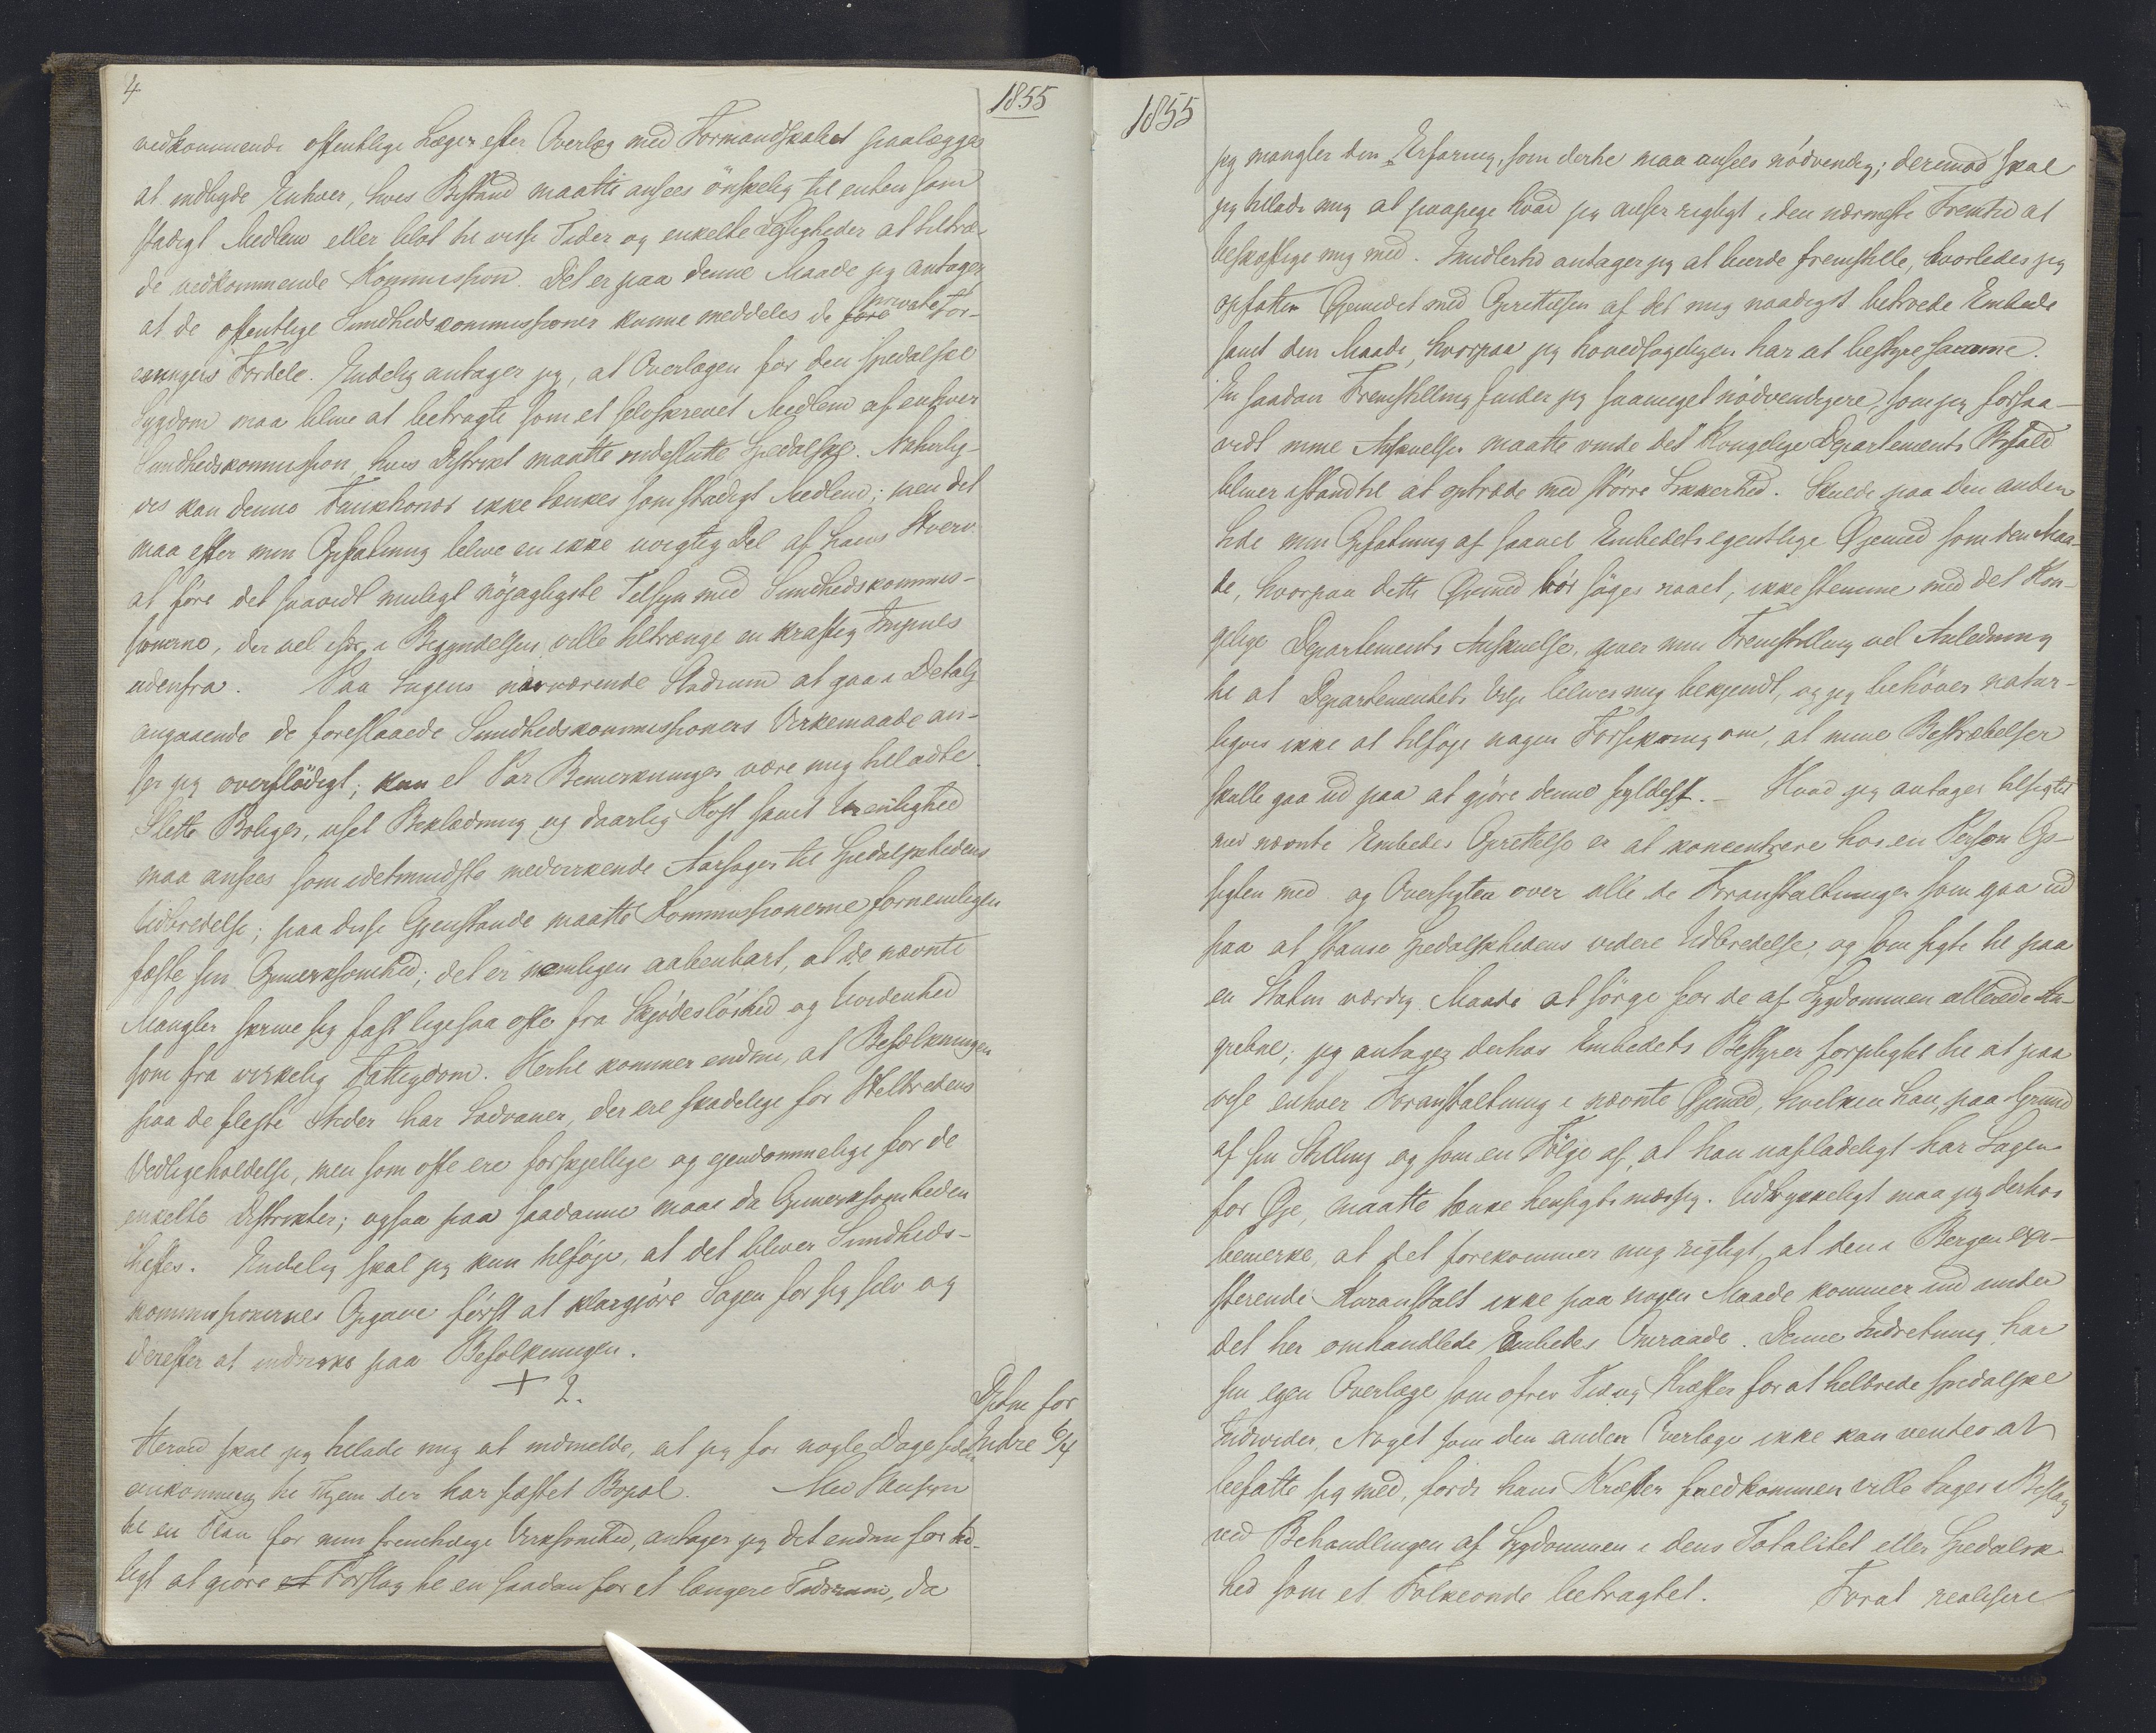 4
1855
vedkommende offentlige Læger efter Overlæg med Formandskabet paalægges
at indbyde Enhver, hvis Bistand maatte ansees önskelig til enten som
stadigt Medlem eller blot til visse Tider og enkelte Lejligheder at tiltræ-
de vedkommende Kommission. Det er paa denne Maade jeg antager,
at de offentlige Sundhedskommissioner kunne meddeles de private For-
eningers Fordele. Endelig antager jeg, at Overlægen for den spedalske
Sygdom maa blive at betragte som et selvskrevet Medlem af enhver
Sundhedskommission, hvis Distrikt maatte indeslutte Spedalske. Naturlig-
vis kan denne Funktionær ikke tænkes som stadigt Medlem; men det
maa efter min Opfatning blive en ikke uvigtig Del af hans Hverv
at före det saavidt muligt nöjagtigste Tilsyn med Sundhedskommis-
sionerne, der vel især i Begyndelsen ville tiltrænge en kraftig Impuls
udenfra. Paa Sagens nærværende Stadium at gaa i Detalj
angaaende de foreslaaede Sundhedskommissioners Virkemaade an-
ser jeg overflödigt; kun et Par Bemerkninger være mig tilladte.
Slette Boliger, ussel Beklædning og daarlig Kost samt Urenlighed
maa ansees som idetmindste medvirkende Aarsager til Spedalskhedens
Udbredelse; paa disse Gjenstande maatte Kommissionerne fornemligen
fæste sin Opmerksomhed; det er nemligen aabenbart, at de nævnte
Mangler skrive sig fast ligesaa ofte fra Skjödeslöshed og Uvidenhed
som fra virkelig Fattigdom. Hertil kommer endnu, at Befolkningen
paa de fleste Steder har Sædvaner, der ere skadelige for Helbredens
Vedligeholdelse, men som ofte ere forskjellige og ejendommelige for de
enkelte Distrikter; ogsaa paa saadanne maa da Opmerksomheden
heftes. Endelig skal jeg kun tilföje, at det bliver Sundheds-
kommissionernes Opgave först at klargjöre Sagen for sig selv og
derefter at indvirke paa Befolkningen.
+
2.
Dptm for
Indre 6/4
Herved skal jeg tillade mig at indmelde, at jeg for nogle Dage siden
ankommen til Byen der har fæstet Bopæl. Med Hensyn
til en Plan for min fremtidige Virksomhed, antager jeg det endnu for tid-
ligt at gjöre et Forslag til en saadan for et længere Tidsrum, da
1855
jeg mangler den Erfaring, som dertil maa ansees nödvendig; derimod skal
jeg tillade mig at paapege hvad jeg anser rigtigt i den nærmeste Fremtid at
beskæftige mig med. Imidlertid antager jeg at burde fremstille, hvorledes jeg
opfatter Øjemedet med Oprettelsen af det mig naadigst betroede Embede
samt den Maade, hvorpaa jeg hovedsageligen har at bestyre samme.
En saadan Fremstilling finder jeg saameget nödvendigere, som jeg forsaa-
vidt mine Anskuelser maatte vinde det Kongelige Departements Bifald
bliver istandtil at optræde med större Sikkerhed. Skulde paa den anden
Side min Opfatning af saavel Embedets egentlige Øjemed som den Maa-
de, hvorpaa dette Øjemed bör söges naaet, ikke stemme med det Kon-
gelige Departements Anskuelse, giver min Fremstilling vel Anledning
til at Departementets Vilje bliver mig bekjendt, og jeg behöver natur-
ligvis ikke at tilföje nogen Forsikring om, at mine Bestræbelser
skulle gaa ud paa at gjöre denne fyldest. – Hvad jeg antager tilsigtet
med nævnte Embedes Oprettelse er at koncentrere hos en Person Op-
sigten med og Oversigten over alle de Foranstaltninger som gaa ud
paa at standse Spedalskhedens videre Udbredelse, og som sigte til paa
en Staten værdig Maade at sörge for de af Sygdommen allerede An-
grebne; jeg antager derhos Embedets Bestyrer forpligtet til at paa
vise enhver Foranstaltning i nævnte Øjemed, hvilken han, paa Grund
af sin Stilling og som en Fölge af, at han uafladeligt har Sagen
for Øje, maatte tænke hensigtsmæssig. Udtrykkeligt maa jeg derhos
bemerke, at det forekommer mig rigtigt, at den i Bergen exi-
sterende Kuranstalt ikke paa nogen Maade kommer ind under
det her omhandlede Embedes Omraade. Denne Indretning har
sin egen Overlæge som ofrer Tid og Kræfter for at helbrede spedalske
Individer, Noget som den anden Overlæge ikke kan ventes at
befatte sig med, fordi hans Kræfter fuldkommen ville tages i Beslag
ved Behandlingen af Sygdommen i dens Totalitet eller Spedalsk-
hed som et Folkeonde betragtet. Forat realisere